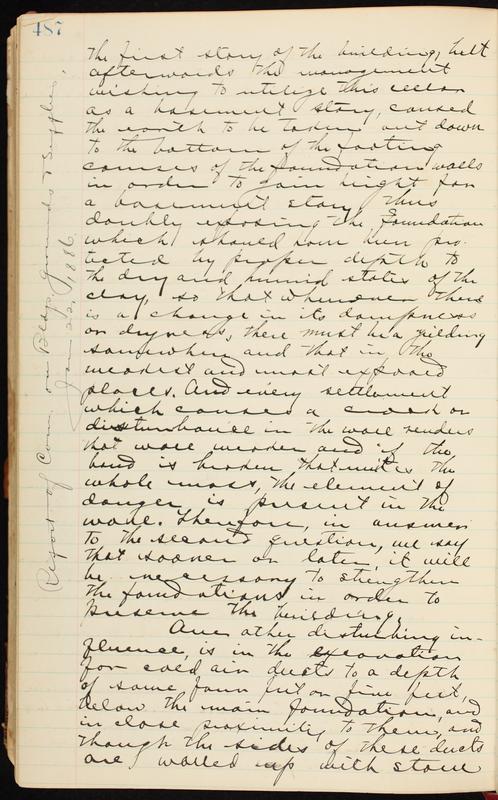 487
the first story of the building, but
afterwards the management
wishing to utilize this cellar
as a basement story, caused
the earth to be taken out down
to the bottom of the footing
courses of the foundation walls
in order to gain hight for
a basement story, thus
doubly exposing the foundation
which should have been pro-
tected by proper depth to
the dry and humid states of the
clay, so that whenever there
is a change in its dampness
or dryness, there must be a yielding
somewhere and that in the
weakest and most exposed
places. And every settlement
which causes a crack or
disturbance in the wall renders
that wall weaker and if the
bond is broken that unites the
whole mass, the element of
danger is present in the
wall. Therefore, in answer
to the second question, we say
that sooner or later, it will
be necessary to strengthen
the foundations in order to
preserve the building.
One other disturbing in-
fluence, is in the excavation
for cold air ducts to a depth
of some four feet or five feet,
below the main foundation, and
in close proximity to them, and
though the sides of these ducts
are walled up with stone
Report of Com. on Bldgs, Grounds & Supplies,
Jan 1886.